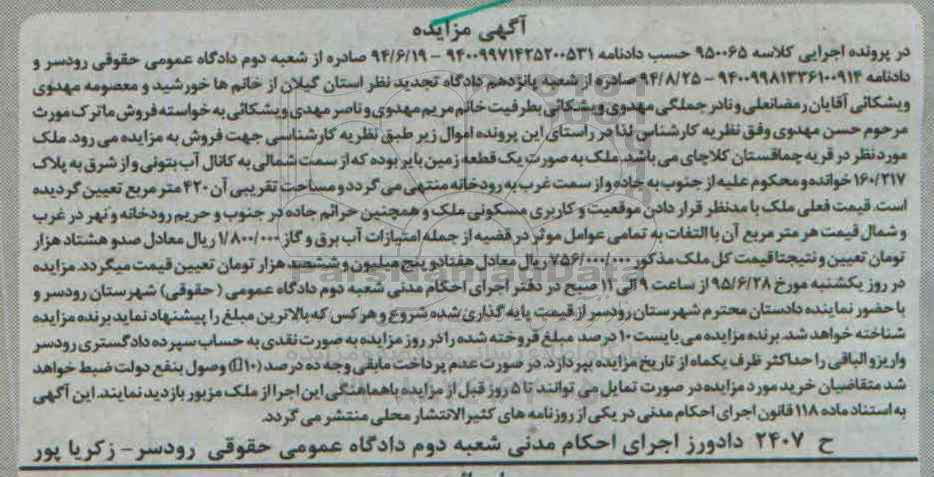 آگهی مزایده
در پرونده اجرایی کلاسه ۹۵۰۰۶۵ حسب دادنامه ۹۴۰۰۹۹۷۱۴۲۵۲۰۰۵۳۱ – ۹۴/۶/۱۹ صادره از شعبه دوم دادگاه عمومی حقوقی رودسر و
دادنامه ۹۴۰۰۹۹۸۱۳۳۶۱۰۰۹۱۴ – ۹۴/۸/۲۵ صادره از شعبه پانزدهم دادگاه تجدید نظر استان گیلان از خانم ها خورشید و معصومه مهدوی
ویشکائی آقایان رمضانعلی و نادر جملگی مهدوی ویشکائی بطرفیت خانم مریم مهدوی و ناصر مهدی ویشکائی به خواسته فروش ماترک مورث
مرحوم حسن مهدوی وفق نظریه کارشناس لذا در راستای این پرونده اموال زیر طبق نظریه کارشناسی جهت فروش به مزایده می رود. ملک
مورد نظر در قریه چماقستان کلاچای می باشد. ملک به صورت یک قطعه زمین بایر بوده که از سمت شمالی به کانال آب بتونی و از شرق به پلاک
۱۶۰/۲۱۷ خوانده و محکوم علیه از جنوب به جاده و از سمت غرب به رودخانه منتهی می گردد و مساحت تقریبی آن ۴۲۰ متر مربع تعیین گردیده
است. قیمت فعلی ملک با مدنظر قرار دادن موقعیت و کاربری مسکونی ملک و همچنین حرائم جاده در جنوب و حریم رودخانه و نهر در غرب
و شمال قیمت هر متر مربع آن با التفات به تمامی عوامل موثر در قضیه از جمله امتیازات آب برق و گاز ۱/۸۰۰/۰۰۰ ریال معادل صد و هشتاد هزار
تومان تعیین و نتیجتا قیمت کل ملک مذکور ۷۵۶/۰۰۰/۰۰۰ ریال معادل هفتاد و پنج میلیون و ششصد هزار تومان تعیین قیمت میگردد. مزایده
در روز یکشنبه مورخ ۹۵/۶/۲۸ از ساعت ۹ الی ۱۲ صبح در دفتر اجرای احکام مدنی شعبه دوم دادگاه عمومی (حقوقی) شهرستان رودسر و
با حضور نماینده دادستان محترم شهرستان رودسر از قیمت پایه گذاری شده شروع و هر کس که بالاترین مبلغ را پیشنهاد نماید برنده مزایده
شناخته خواهد شد. برنده مزایده می بایست ۱۰ درصد مبلغ فروخته شده را در روز مزایده به صورت نقدی به حساب سپرده دادگستری رودسر
واریز و الباقی را حداکثر ظرف یکماه از تاریخ مزایده بپردازد. در صورت عدم پرداخت مابقی وجه ده درصد (۱۰) وصول بنفع دولت ضبط خواهد
شد متقاضیان خرید مورد مزایده در صورت تمایل می توانند تا ۵ روز قبل از مزایده با هماهنگی این اجرا از ملک مزبور بازدید نمایند. این آگهی
به استناد ماده ۱۱۸ قانون اجرای احکام مدنی در یکی از روزنامه های کثیرالانتشار محلی منتشر می گردد.
ح ۲۴۰۷ دادورز اجرای احکام مدنی شعبه دوم دادگاه عمومی حقوقی رودسر – زکریا پور
ParsNamadData